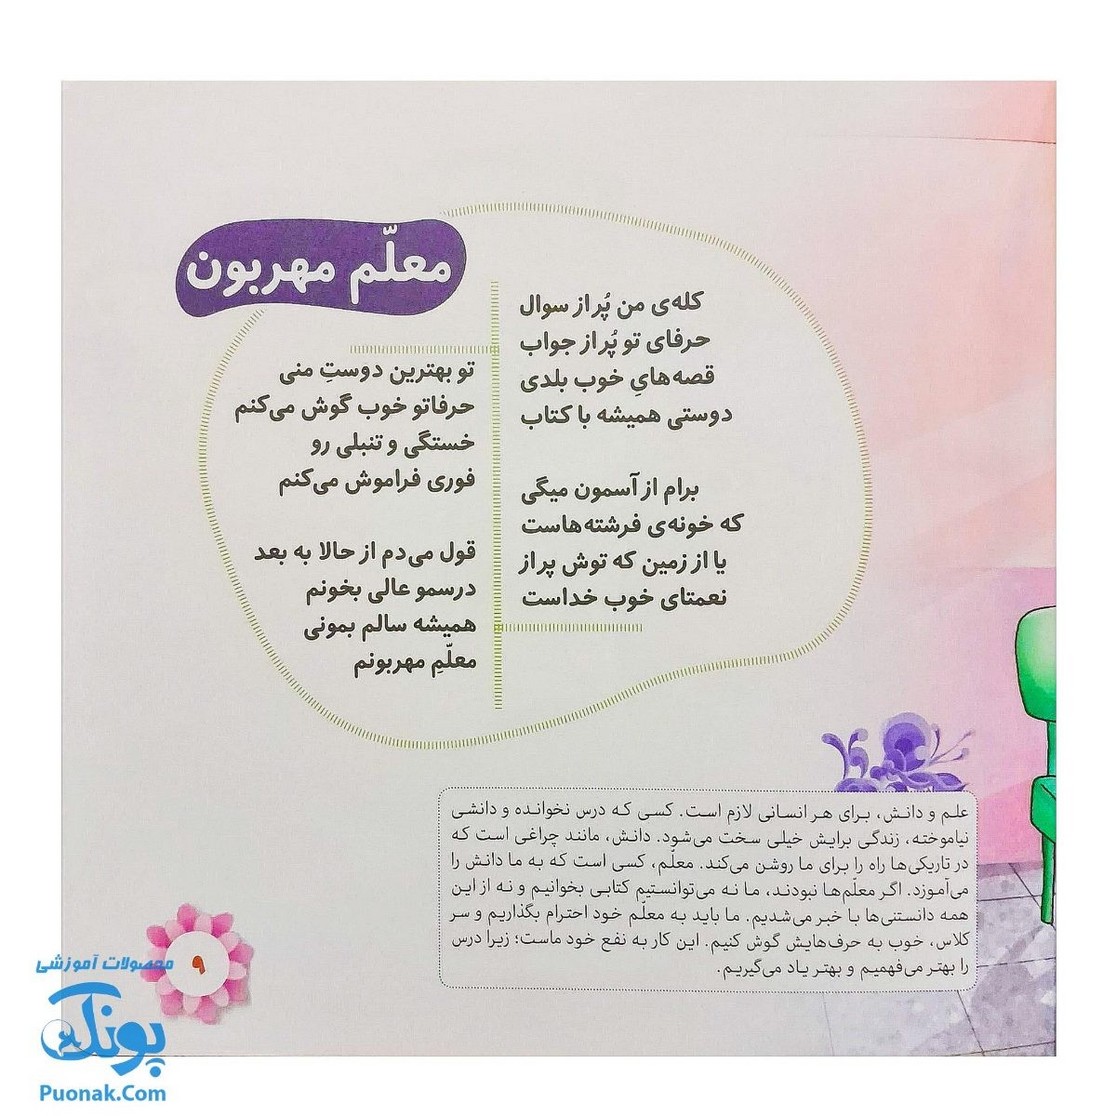 معلّم مهربون
کله‌ی من پُر از سوال
حرفای تو پُر از جواب
قصه‌هایِ خوب بلدی
دوستی همیشه با کتاب
برام از آسمون میگی
که خونه‌ی فرشته‌هاست
یا از زمین که توش پر از
نعمتای خوب خداست
تو بهترین دوستِ منی
حرفاتو خوب گوش می‌کنم
خستگی و تنبلی رو
فوری فراموش می‌کنم
قول می‌دم از حالا به بعد
درسمو عالی بخونم
همیشه سالم بمونی
معلّمِ مهربونم
علم و دانش، برای هر انسانی لازم است. کسی که درس نخوانده و دانشی
نیاموخته، زندگی برایش خیلی سخت می‌شود. دانش، مانند چراغی است که
در تاریکی‌ها راه را برای ما روشن می‌کند. معلّم، کسی است که به ما دانش را
می‌آموزد. اگر معلّم‌ها نبودند، ما نه می‌توانستیم کتابی بخوانیم و نه از این
همه دانستنی‌ها با خبر می‌شدیم. ما باید به معلّم خود احترام بگذاریم و سر
کلاس، خوب به حرف‌هایش گوش کنیم. این کار به نفع خود ماست؛ زیرا درس
را بهتر می‌فهمیم و بهتر یاد می‌گیریم.
۹
محصولات آموزشی
پونک
Puonak.Com